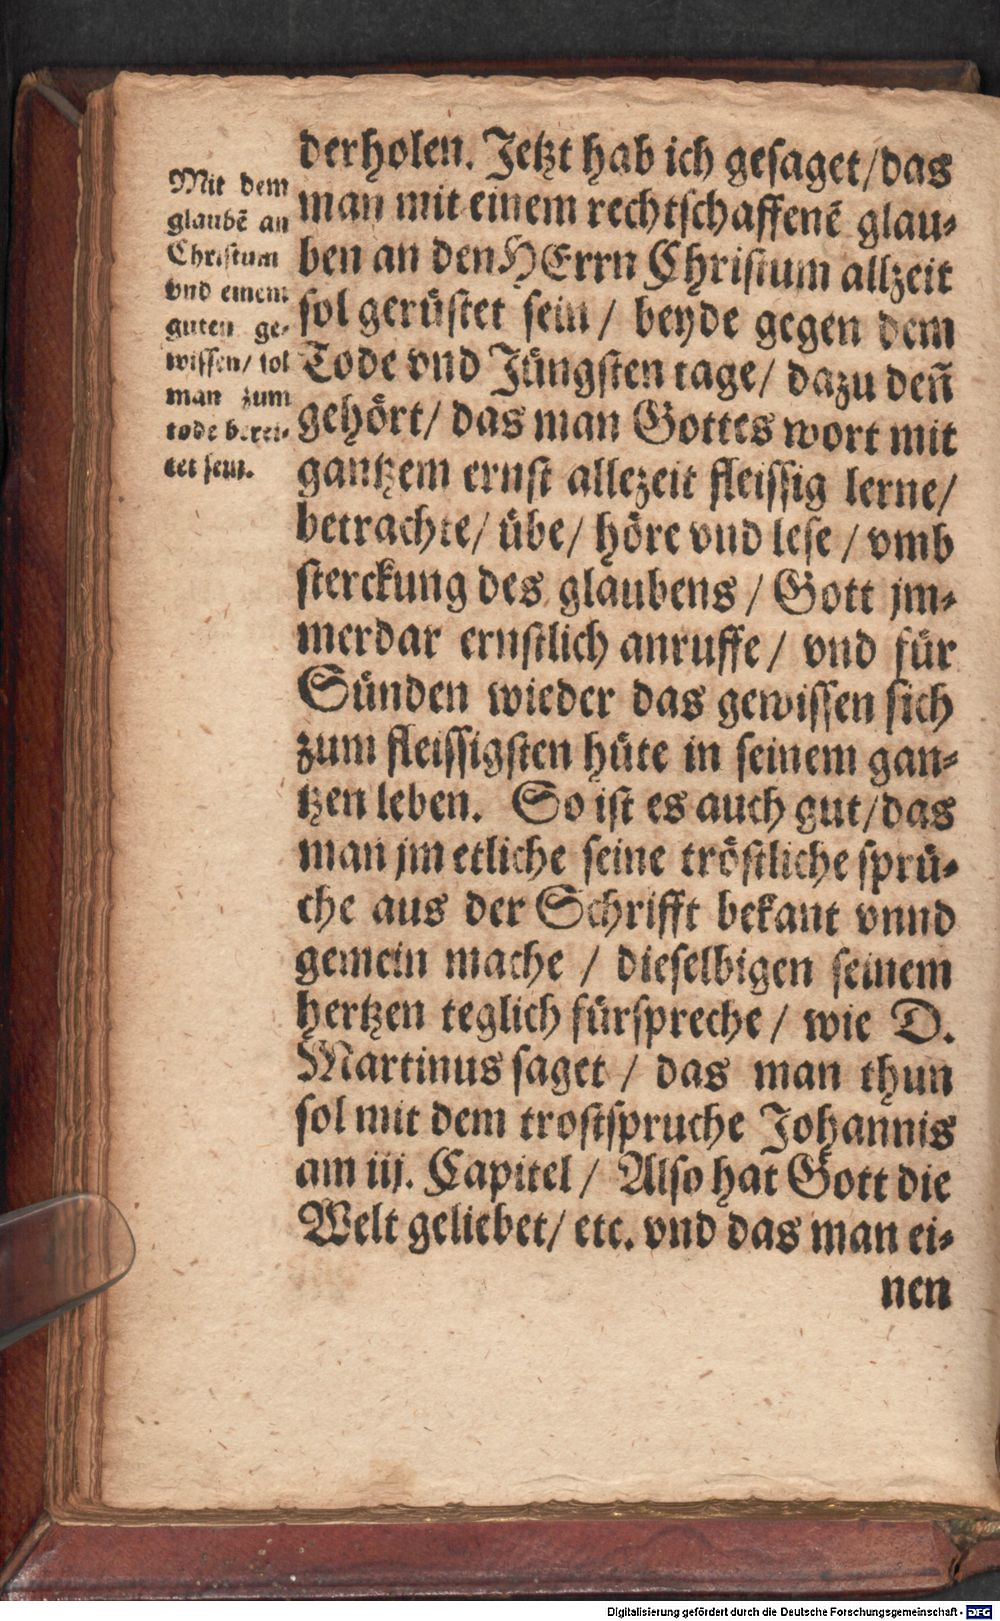 Mit dem
glaubē an
Christum
vnd einem
guten ge-
wissen/ sol
man zum
tode berei-
tet sein.
derholen. Jetzt hab ich gesaget/das
man mit einem rechtschaffenē glau-
ben an den HErrn Christum allzeit
sol gerüstet sein/ beyde gegen dem
Tode vnd Jüngsten tage/ dazu deñ
gehört/ das man Gottes wort mit
gantzem ernst allezeit fleissig lerne/
betrachte/ übe/ höre vnd lese / vmb
sterckung des glaubens / Gott jm-
merdar ernstlich anruffe / vnd für
Sünden wieder das gewissen sich
zum fleissigsten hüte in seinem gan-
tzen leben. So ist es auch gut/das
man jm etliche seine tröstliche sprü-
che aus der Schrifft bekant vnnd
gemein mache / dieselbigen seinem
hertzen teglich fürspreche / wie D.
Martinus saget / das man thun
sol mit dem trostspruche Johannis
am iij. Capitel / Also hat Gott die
Welt geliebet/ etc. vnd das man ei-
nen
Digitalisierung gefördert durch die Deutsche Forschungsgemeinschaft - DFG